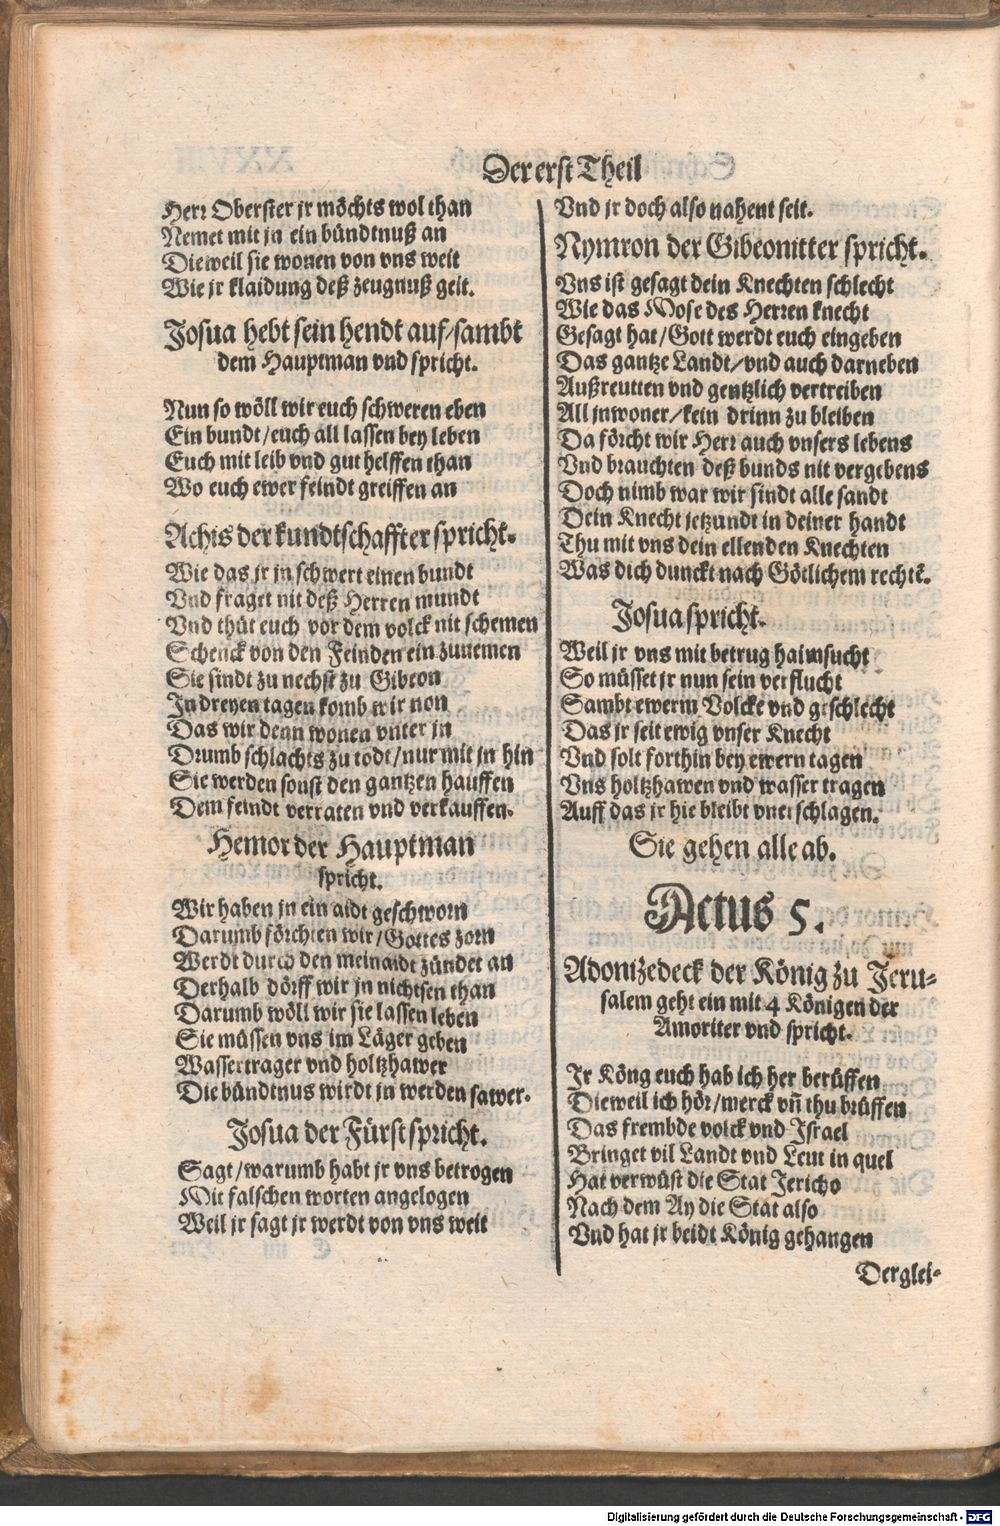 Der erst Theil
Herr Oberster jr möchts wol than
Nemet mit jn ein bündtnuß an
Dieweil sie wonen von vns weit
Wie jr klaidung deß zeugnuß geit.
Josua hebt sein hendt auf/sambt
dem Hauptman vnd spricht.
Nun so wöll wir euch schweren eben
Ein bundt/euch all lassen bey leben
Euch mit leib vnd gut helffen than
Wo euch ewer feindt greiffen an
Achis der kundtschaffter spricht.
Wie das jr jn schwert einen bundt
Vnd fraget nit deß Herren mundt
Vnd thüt euch vor dem volck nit schemen
Schenck von den Feinden ein zunemen
Sie sindt zu nechst zu Gibeon
In dreyen tagen komb wir non
Das wir denn wonen vnter jn
Drumb schlachts zu todt/nur mit jn hin
Sie werden sonst den gantzen hauffen
Dem feindt verraten vnd verkauffen.
Hemor der Hauptman
spricht.
Wir haben jn ein aidt geschworn
Darumb förchten wir/Gottes zorn
Werdt durch den meinaidt zündet an
Derhalb dörff wir jn nichtsen than
Darumb wöll wir sie lassen leben
Sie müssen vns im Läger geben
Wassertrager vnd holtzhawer
Die bündtnus wirdt jn werden sawer.
Josua der Fürst spricht.
Sagt/warumb habt jr vns betrogen
Mit falschen worten angelogen
Weil jr sagt jr werdt von vns weit
Vnd jr doch also nahent seit.
Nymron der Gibeonitter spricht.
Vns ist gesagt dein Knechten schlecht
Wie das Mose des Herren knecht
Gesagt hat/Gott werdt euch eingeben
Das gantze Landt/vnd auch darneben
Außreutten vnd gentzlich vertreiben
All jnwoner/kein drinn zu bleiben
Da förcht wir Herr auch vnsers lebens
Vnd brauchten deß bunds nit vergebens
Doch nimb war wir sindt alle sandt
Dein Knecht jetzundt in deiner handt
Thu mit vns dein ellenden Knechten
Was dich dunckt nach Götlichem rechtē.
Josua spricht.
Weil jr vns mit betrug haimsucht
So müsset jr nun sein verflucht
Sambt ewerm Volcke vnd geschlecht
Das jr seit ewig vnser Knecht
Vnd solt forthin bey ewern tagen
Vns holtzhawen vnd wasser tragen
Auff das jr hie bleibt vnerschlagen.
Sie gehen alle ab.
Actus 5.
Adonizedeck der König zu Jeru-
salem geht ein mit 4 Königen der
Amoriter vnd spricht.
Jr Köng euch hab ich her berüffen
Dieweil ich hör/merck vn̄ thu brüffen
Das frembde volck vnd Israel
Bringet vil Landt vnd Leut in quel
Hat verwüst die Stat Jericho
Nach dem Ay die Stat also
Vnd hat jr beidt König gehangen
Derglei-
Digitalisierung gefördert durch die Deutsche Forschungsgemeinschaft - DFG